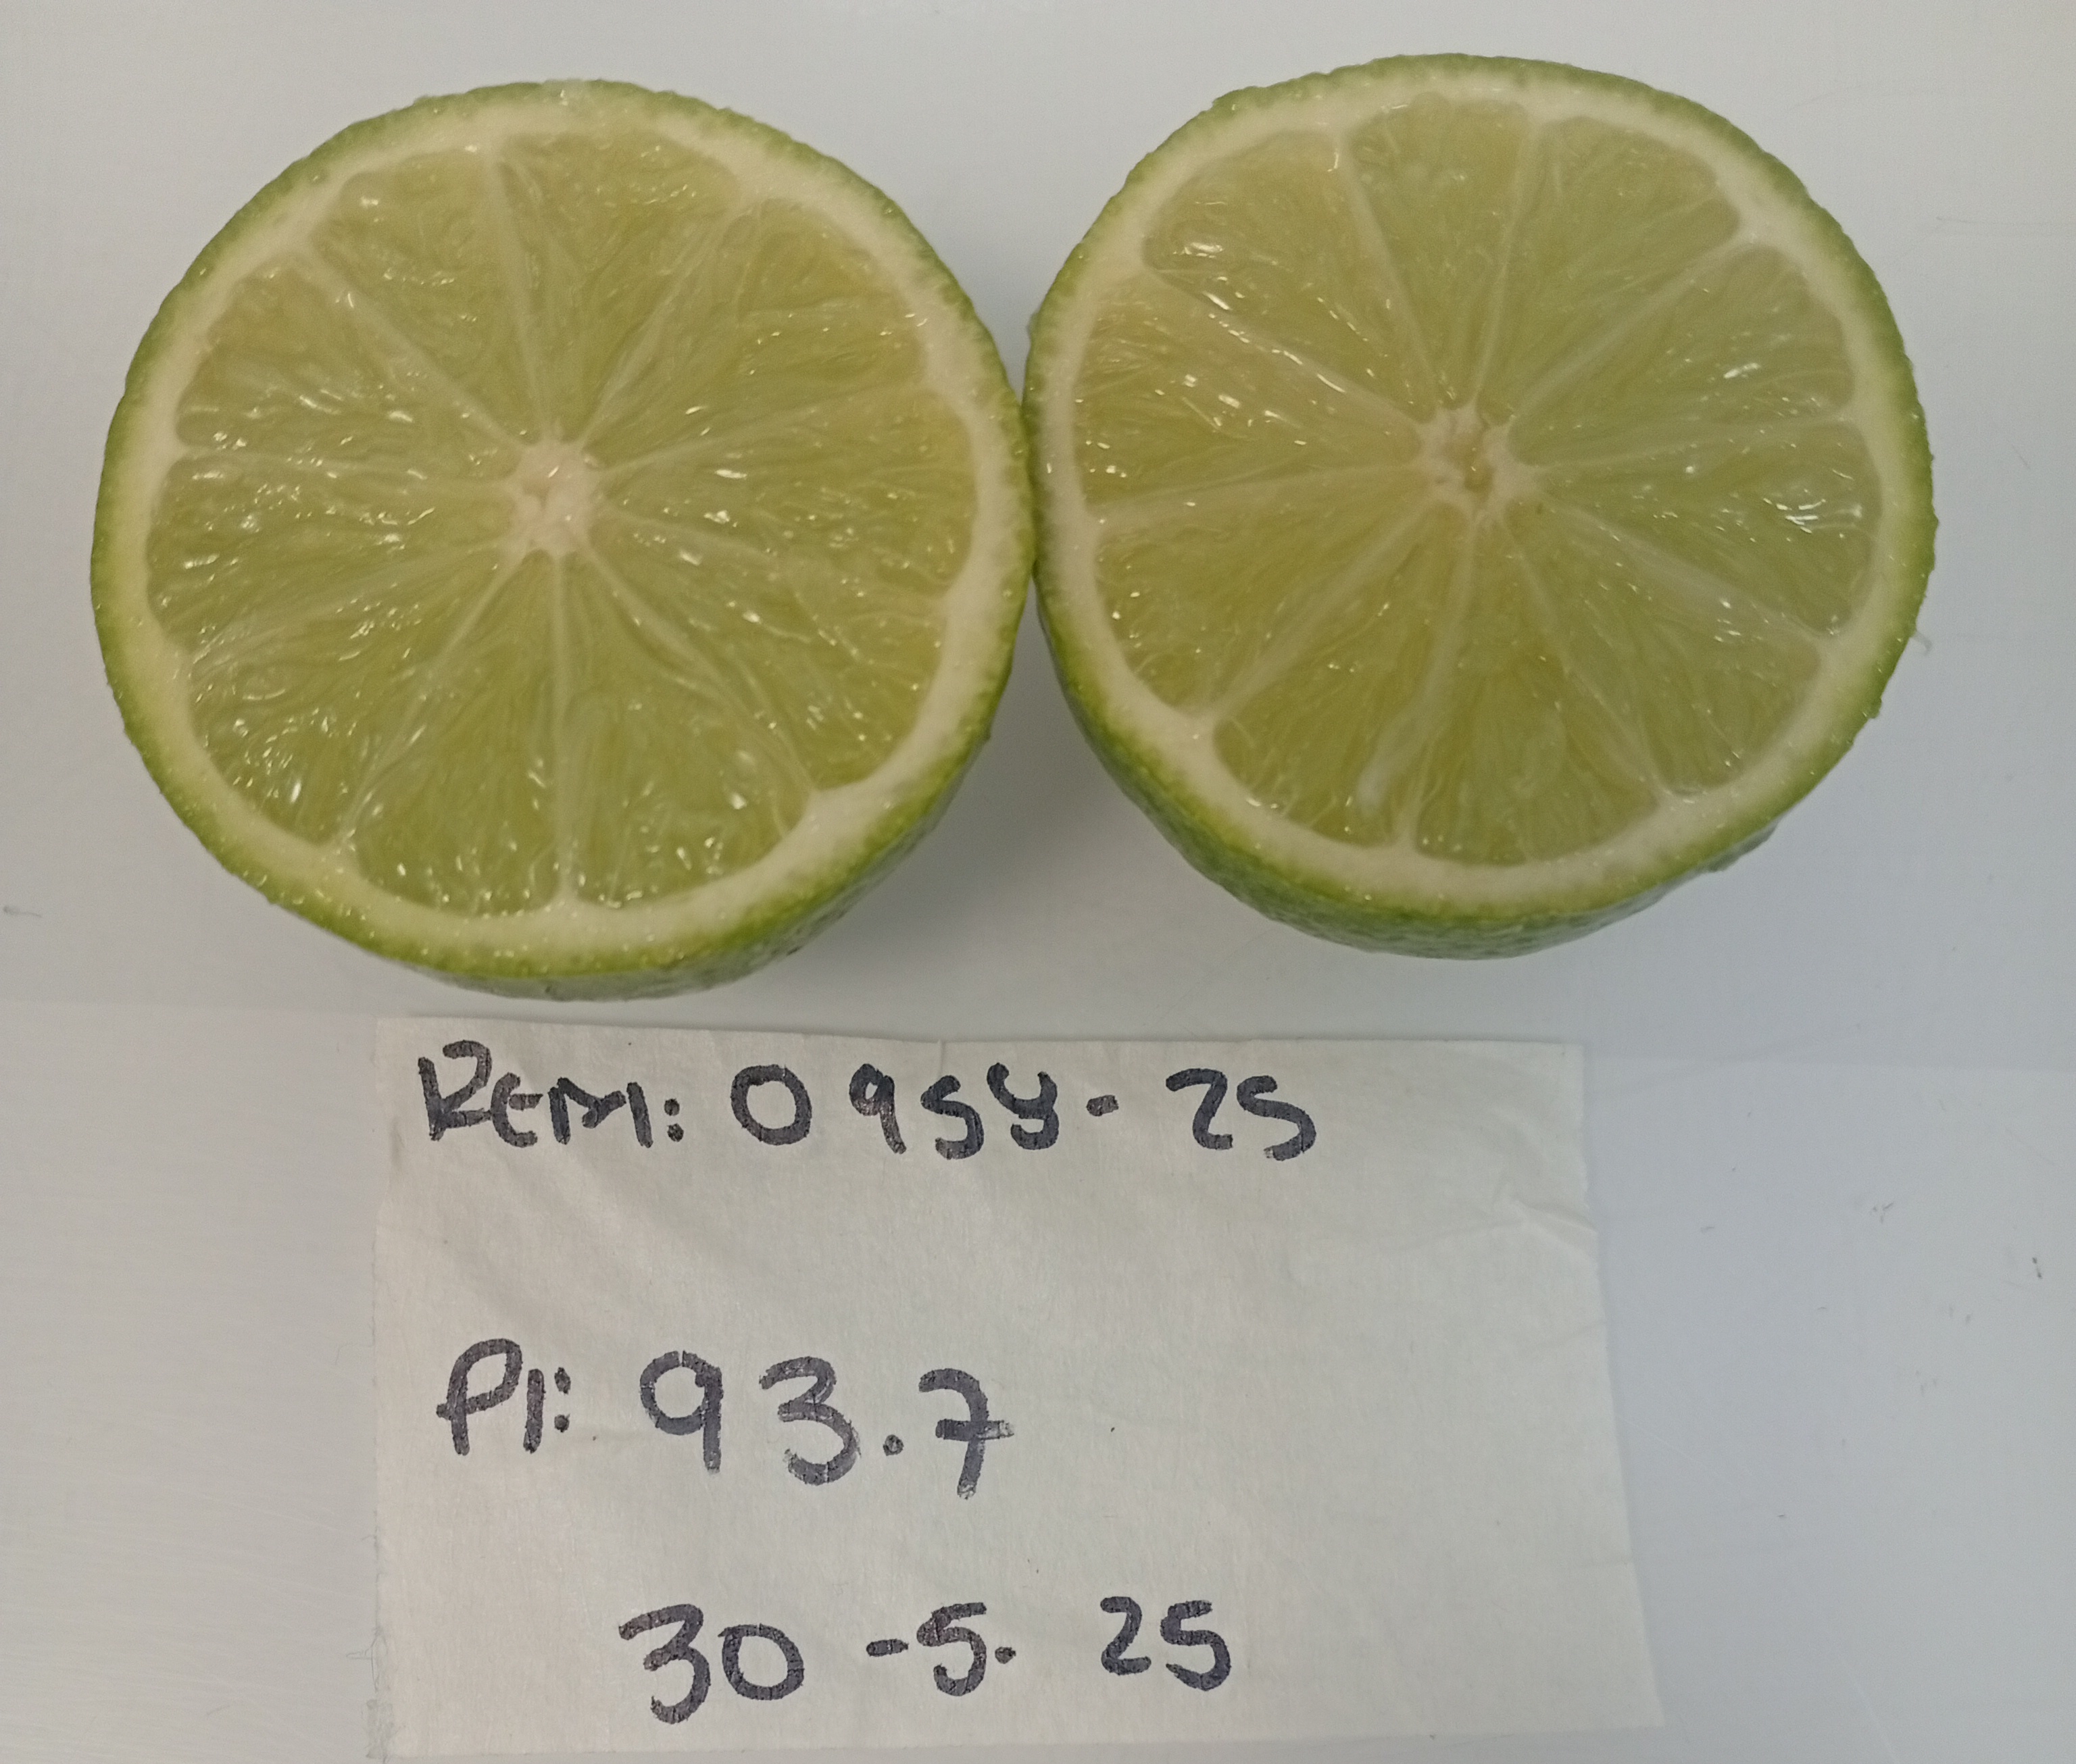 REM: 0958-25
PI: 93.7
30-5.25